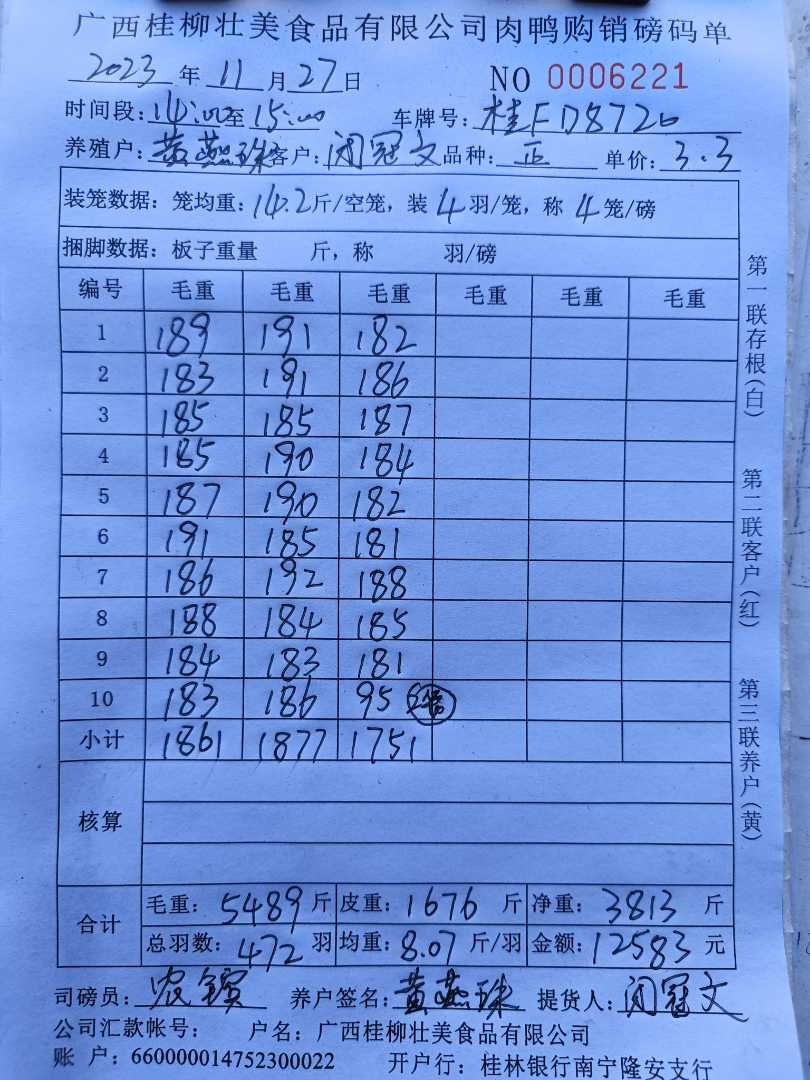 广西桂柳壮美食品有限公司肉鸭购销磅码单
2023年11月27日 NO 0006221
时间段:14:00至15:00 车牌号:桂FD8720
养殖户:黄燕珠 客户:闭冠文 品种:正 单价:3.3
装笼数据:笼均重:14.2斤/空笼,装4羽/笼,称4笼/磅
捆脚数据:板子重量 斤,称 羽/磅
编号 毛重 毛重 毛重 毛重 毛重 毛重
1 189 191 182
2 183 191 186
3 185 185 187
4 185 190 184
5 187 190 182
6 191 185 181
7 186 192 188
8 188 184 185
9 184 183 181
10 183 186 95
小计 1861 1877 1751
核算
合计 毛重:5489斤 皮重:1676斤 净重:3813斤
总羽数:472羽 均重:8.07斤/羽 金额:12583元
司磅员:农 养户签名:黄燕珠 提货人:闭冠文
公司汇款帐号: 户名:广西桂柳壮美食品有限公司
账 户:660000014752300022 开户行:桂林银行南宁隆安支行
第一联存根(白) 第二联客户(红) 第三联养户(黄)